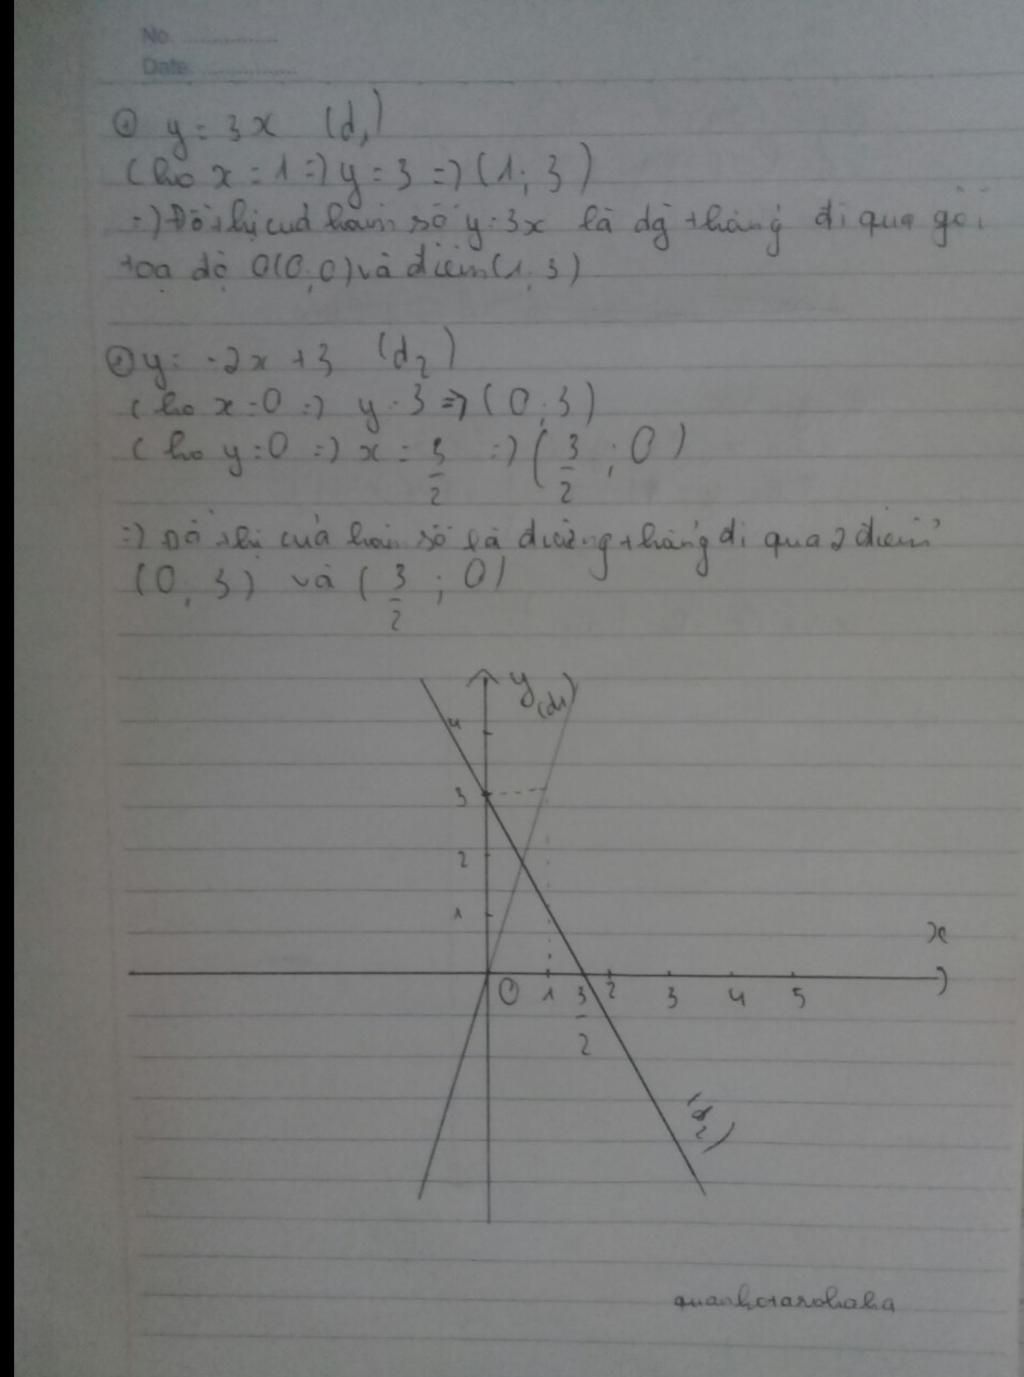 No. ................
Date ................
y = 3x (d₁)
Cho x = 1 => y = 3 => (1; 3)
=> Đồ thị cuả hàm số y = 3x là đg thẳng đi qua gốc
toạ độ O(0; 0) và điểm (1; 3)
y = -2x + 3 (d₂)
Cho x = 0 => y = 3 => (0; 3)
Cho y = 0 => x = 3/2 => (3/2 ; 0)
=> Đồ thị cuả hàm số là đường thẳng đi qua 2 điểm
(0; 3) và (3/2 ; 0)
y (d₁)
4
3
2
1
x
O 1 3/2 2 3 4 5
(d₂)
quanhotarohaha